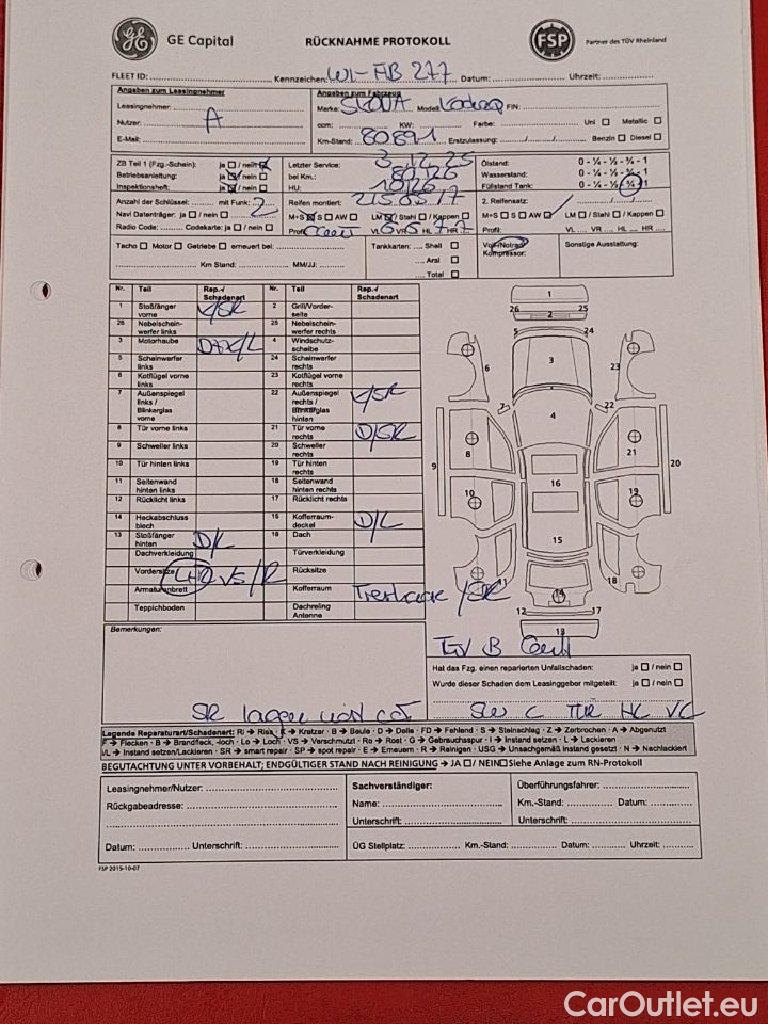 GE Capital RÜCKNAHME PROTOKOLL FSP Partner des TÜV Rheinland
FLEET ID: Kennzeichen: WI-AB 277 Datum: Uhrzeit:
Angaben zum Leasingnehmer Angaben zum Fahrzeug
Leasingnehmer: Marke: SKODA Modell: FIN:
Nutzer: A ccm: KW: Farbe: Uni Metallic
E-Mail: Km-Stand: 80891 Erstzulassung: Benzin Diesel
ZB Teil 1 (Fzg.-Schein): ja / nein Letzter Service: 3.12.25 Ölstand: 0 - ¼ - ½ - ¾ - 1
Betriebsanleitung: ja / nein bei Km.: 80126 Wasserstand: 0 - ¼ - ½ - ¾ - 1
Inspektionsheft: ja / nein HU: 10/26 Füllstand Tank: 0 - ¼ - ½ - ¾ - 1
Anzahl der Schlüssel: mit Funk: 2 Reifen montiert: 215.65.17 2. Reifensatz:
Navi Datenträger: ja / nein M+S S AW LM / Stahl / Kappen M+S S AW LM / Stahl / Kappen
Radio Code: Codekarte: ja / nein Profil: VL 6 VR 5 HL 7 HR 7 Profil: VL VR HL HR
Tacho Motor Getriebe erneuert bei: Tankkarten: Shell Voll-/Notrad Sonstige Ausstattung:
Aral Kompressor:
Km Stand: MM/JJ: Total
Nr. Teil Rep./Schadenart Nr. Teil Rep./Schadenart
1 Stoßfänger vorne K/SR 2 Grill/Vorderseite
26 Nebelscheinwerfer links 25 Nebelscheinwerfer rechts
3 Motorhaube 4 Windschutzscheibe
5 Scheinwerfer links 24 Scheinwerfer rechts
6 Kotflügel vorne links 23 Kotflügel vorne rechts
7 Außenspiegel links / Blinkerglas vorne 22 Außenspiegel rechts / Blinkerglas hinten K/SR
8 Tür vorne links 21 Tür vorne rechts D/SR
9 Schweller links 20 Schweller rechts
10 Tür hinten links 19 Tür hinten rechts
11 Seitenwand hinten links 18 Seitenwand hinten rechts
12 Rücklicht links 17 Rücklicht rechts
14 Heckabschlussblech 15 Kofferraumdeckel D/L
13 Stoßfänger hinten D/L 16 Dach
Dachverkleidung Türverkleidung
Vordersitze VS/R Rücksitze
Armaturenbrett Kofferraum
Teppichboden Dachreling Antenne
1
26 25
2
5 24
3
6 23
7 22
4
8 21
9 20
10 19
16
15
11 18
14
12 17
13
Bemerkungen:
Hat das Fzg. einen reparierten Unfallschaden: ja / nein
Wurde dieser Schaden dem Leasinggeber mitgeteilt: ja / nein
Legende Reparaturart/Schadenart: Ri → Riss, K → Kratzer - B → Beule - D → Delle - FD → Fehlend - S → Steinschlag - Z → Zerbrochen - A → Abgenutzt
F → Flecken - B → Brandfleck, -loch - Lo → Loch - VS → Verschmutzt - Ro → Rost - G → Gebrauchsspur - I → Instand setzen - L → Lackieren
I/L → Instand setzen/Lackieren - SR → smart repair - SP → spot repair - E → Erneuern - R → Reinigen - USG → Unsachgemäß instand gesetzt - N → Nachlackiert
BEGUTACHTUNG UNTER VORBEHALT; ENDGÜLTIGER STAND NACH REINIGUNG → JA / NEIN Siehe Anlage zum RN-Protokoll
Leasingnehmer/Nutzer: Sachverständiger: Überführungsfahrer:
Rückgabeadresse: Name: Km.-Stand: Datum:
Unterschrift: Unterschrift:
Datum: Unterschrift: ÜG Stellplatz: Km.-Stand: Datum: Uhrzeit:
FSP 2015-10-07
CarOutlet.eu